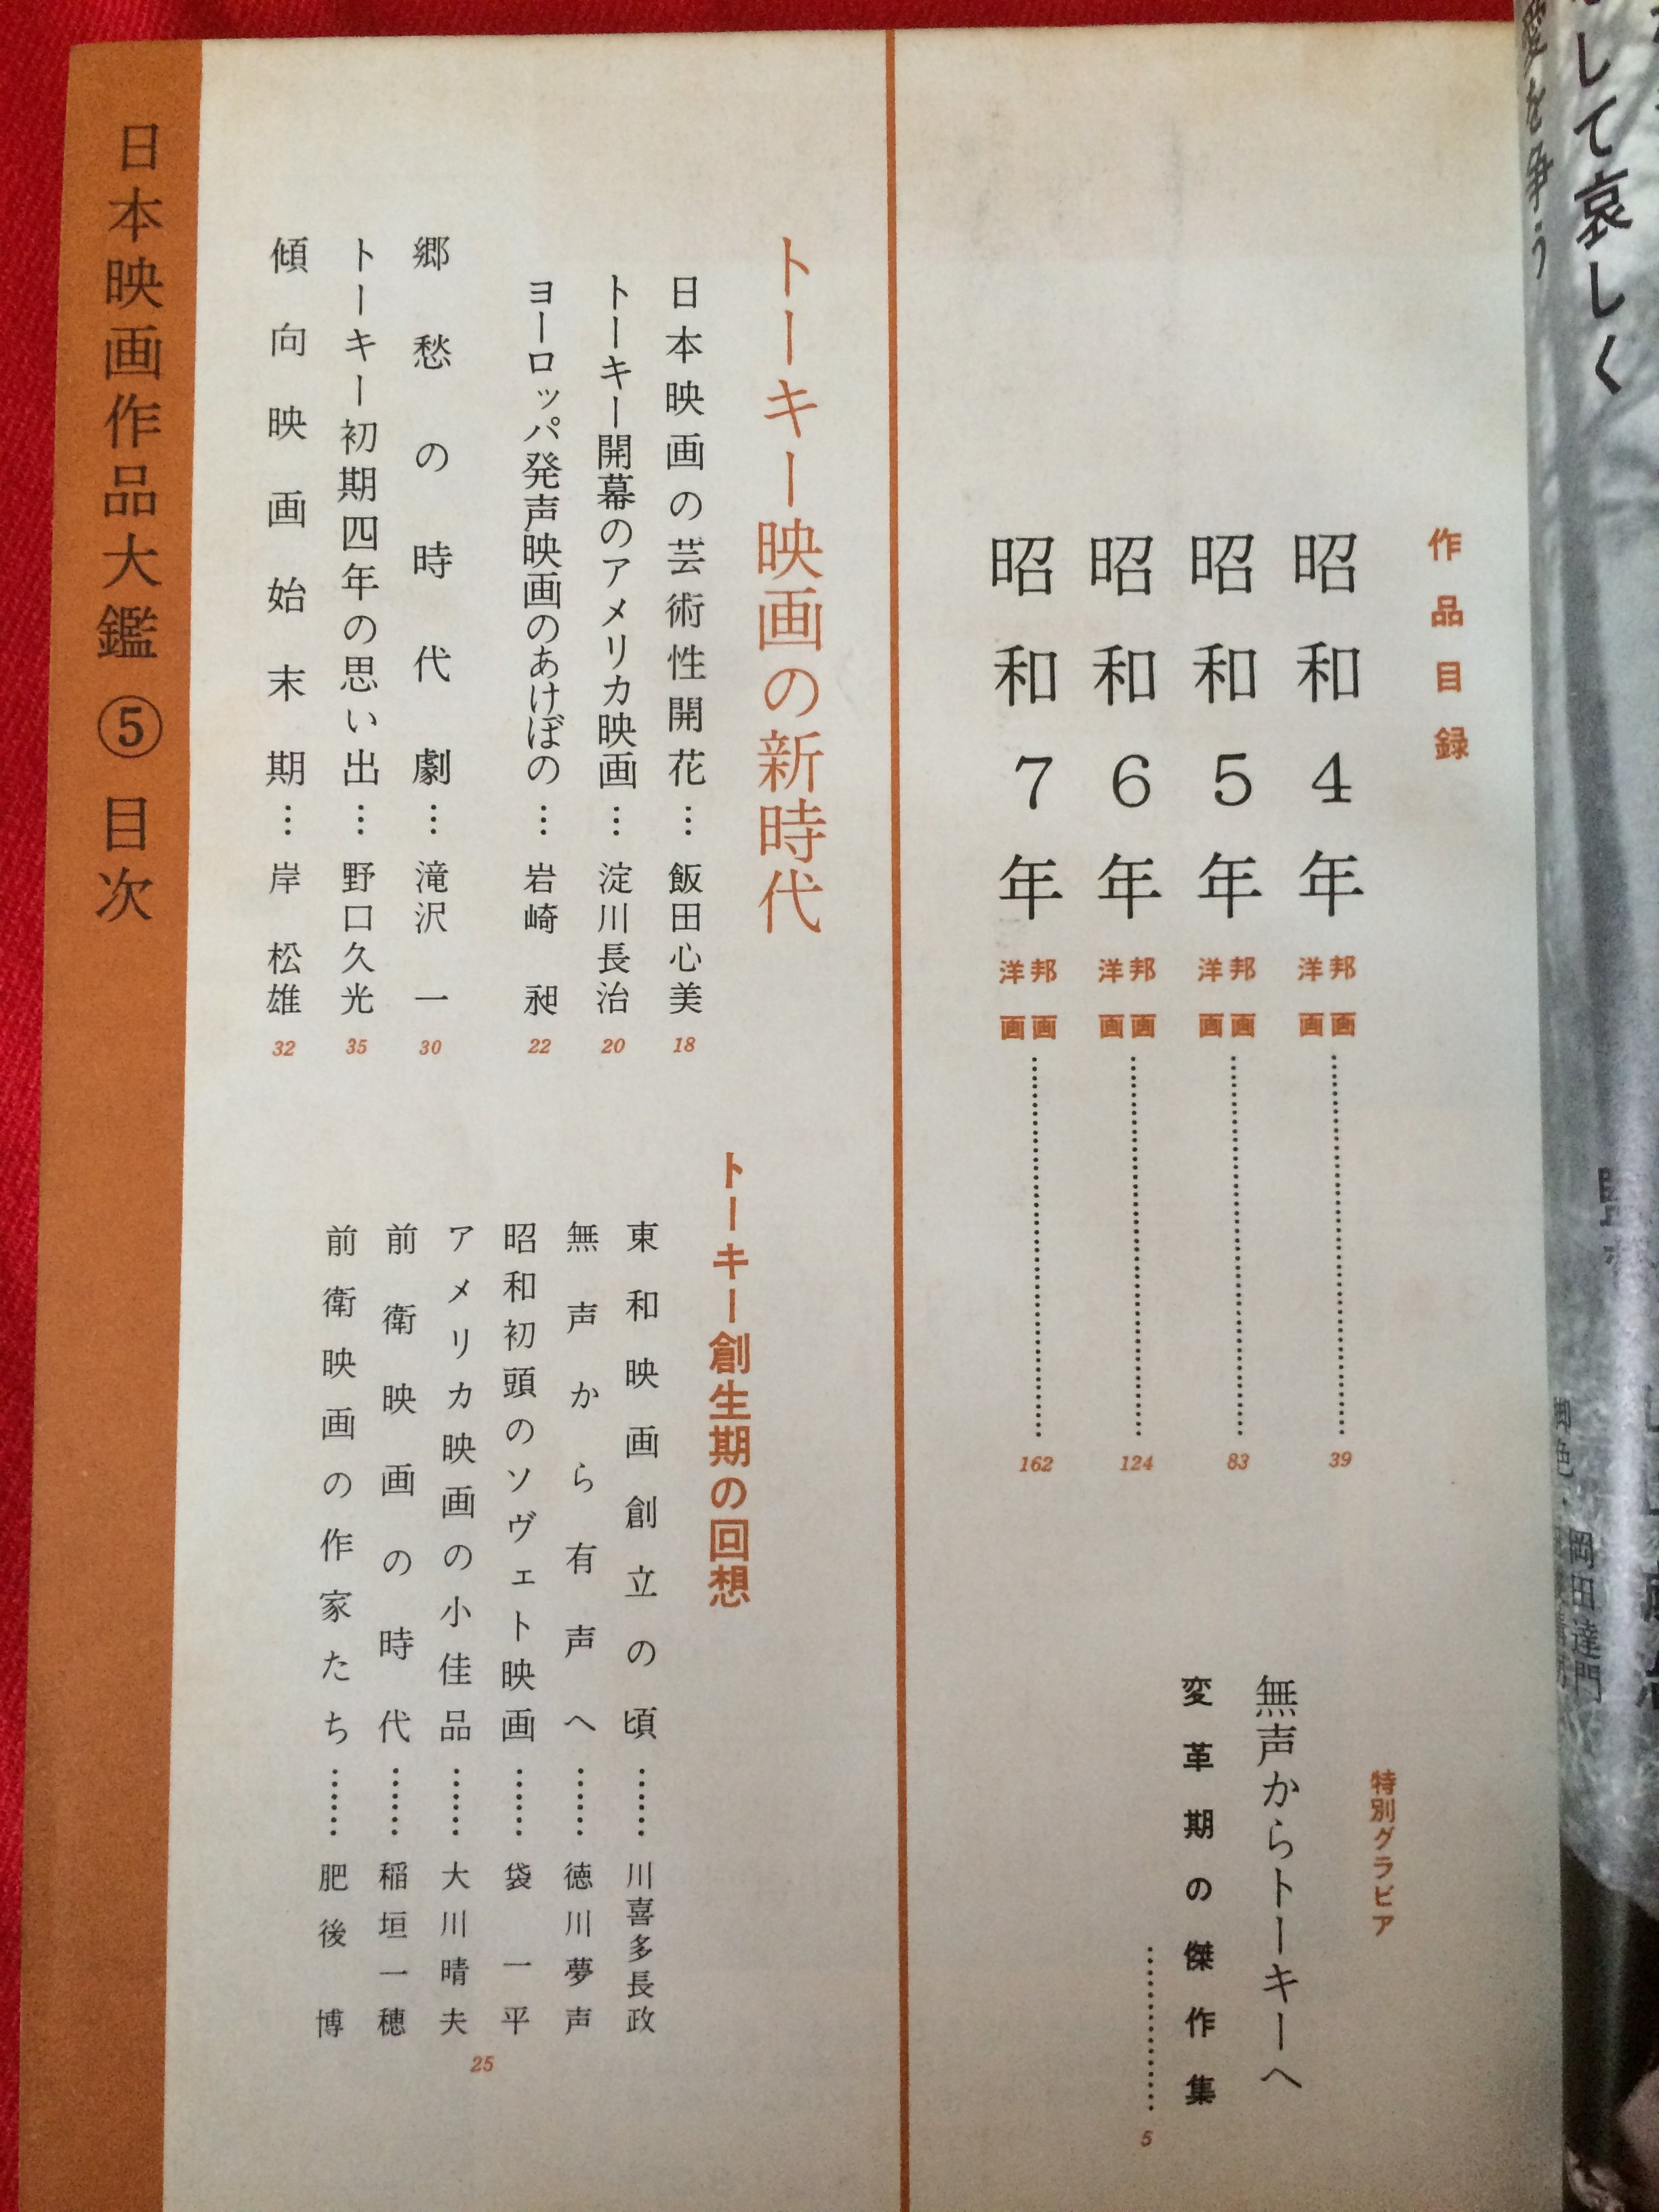 して哀しく
愛を争う
岡田達門
作品目録
昭和4年 邦画 洋画……39
昭和5年 邦画 洋画……83
昭和6年 邦画 洋画……124
昭和7年 邦画 洋画……162
特別グラビア
無声からトーキーへ
変革期の傑作集
……5
トーキー映画の新時代
日本映画の芸術性開花…飯田心美 18
トーキー開幕のアメリカ映画…淀川長治 20
ヨーロッパ発声映画のあけぼの…岩崎 昶 22
郷愁の時代劇…滝沢 一 30
トーキー初期四年の思い出…野口久光 35
傾向映画始末期…岸 松雄 32
トーキー創生期の回想
東和映画創立の頃……川喜多長政
無声から有声へ……徳川夢声
昭和初頭のソヴェト映画……袋 一平
アメリカ映画の小佳品……大川晴夫
前衛映画の時代……稲垣一穂
前衛映画の作家たち……肥後 博
25
日本映画作品大鑑⑤目次